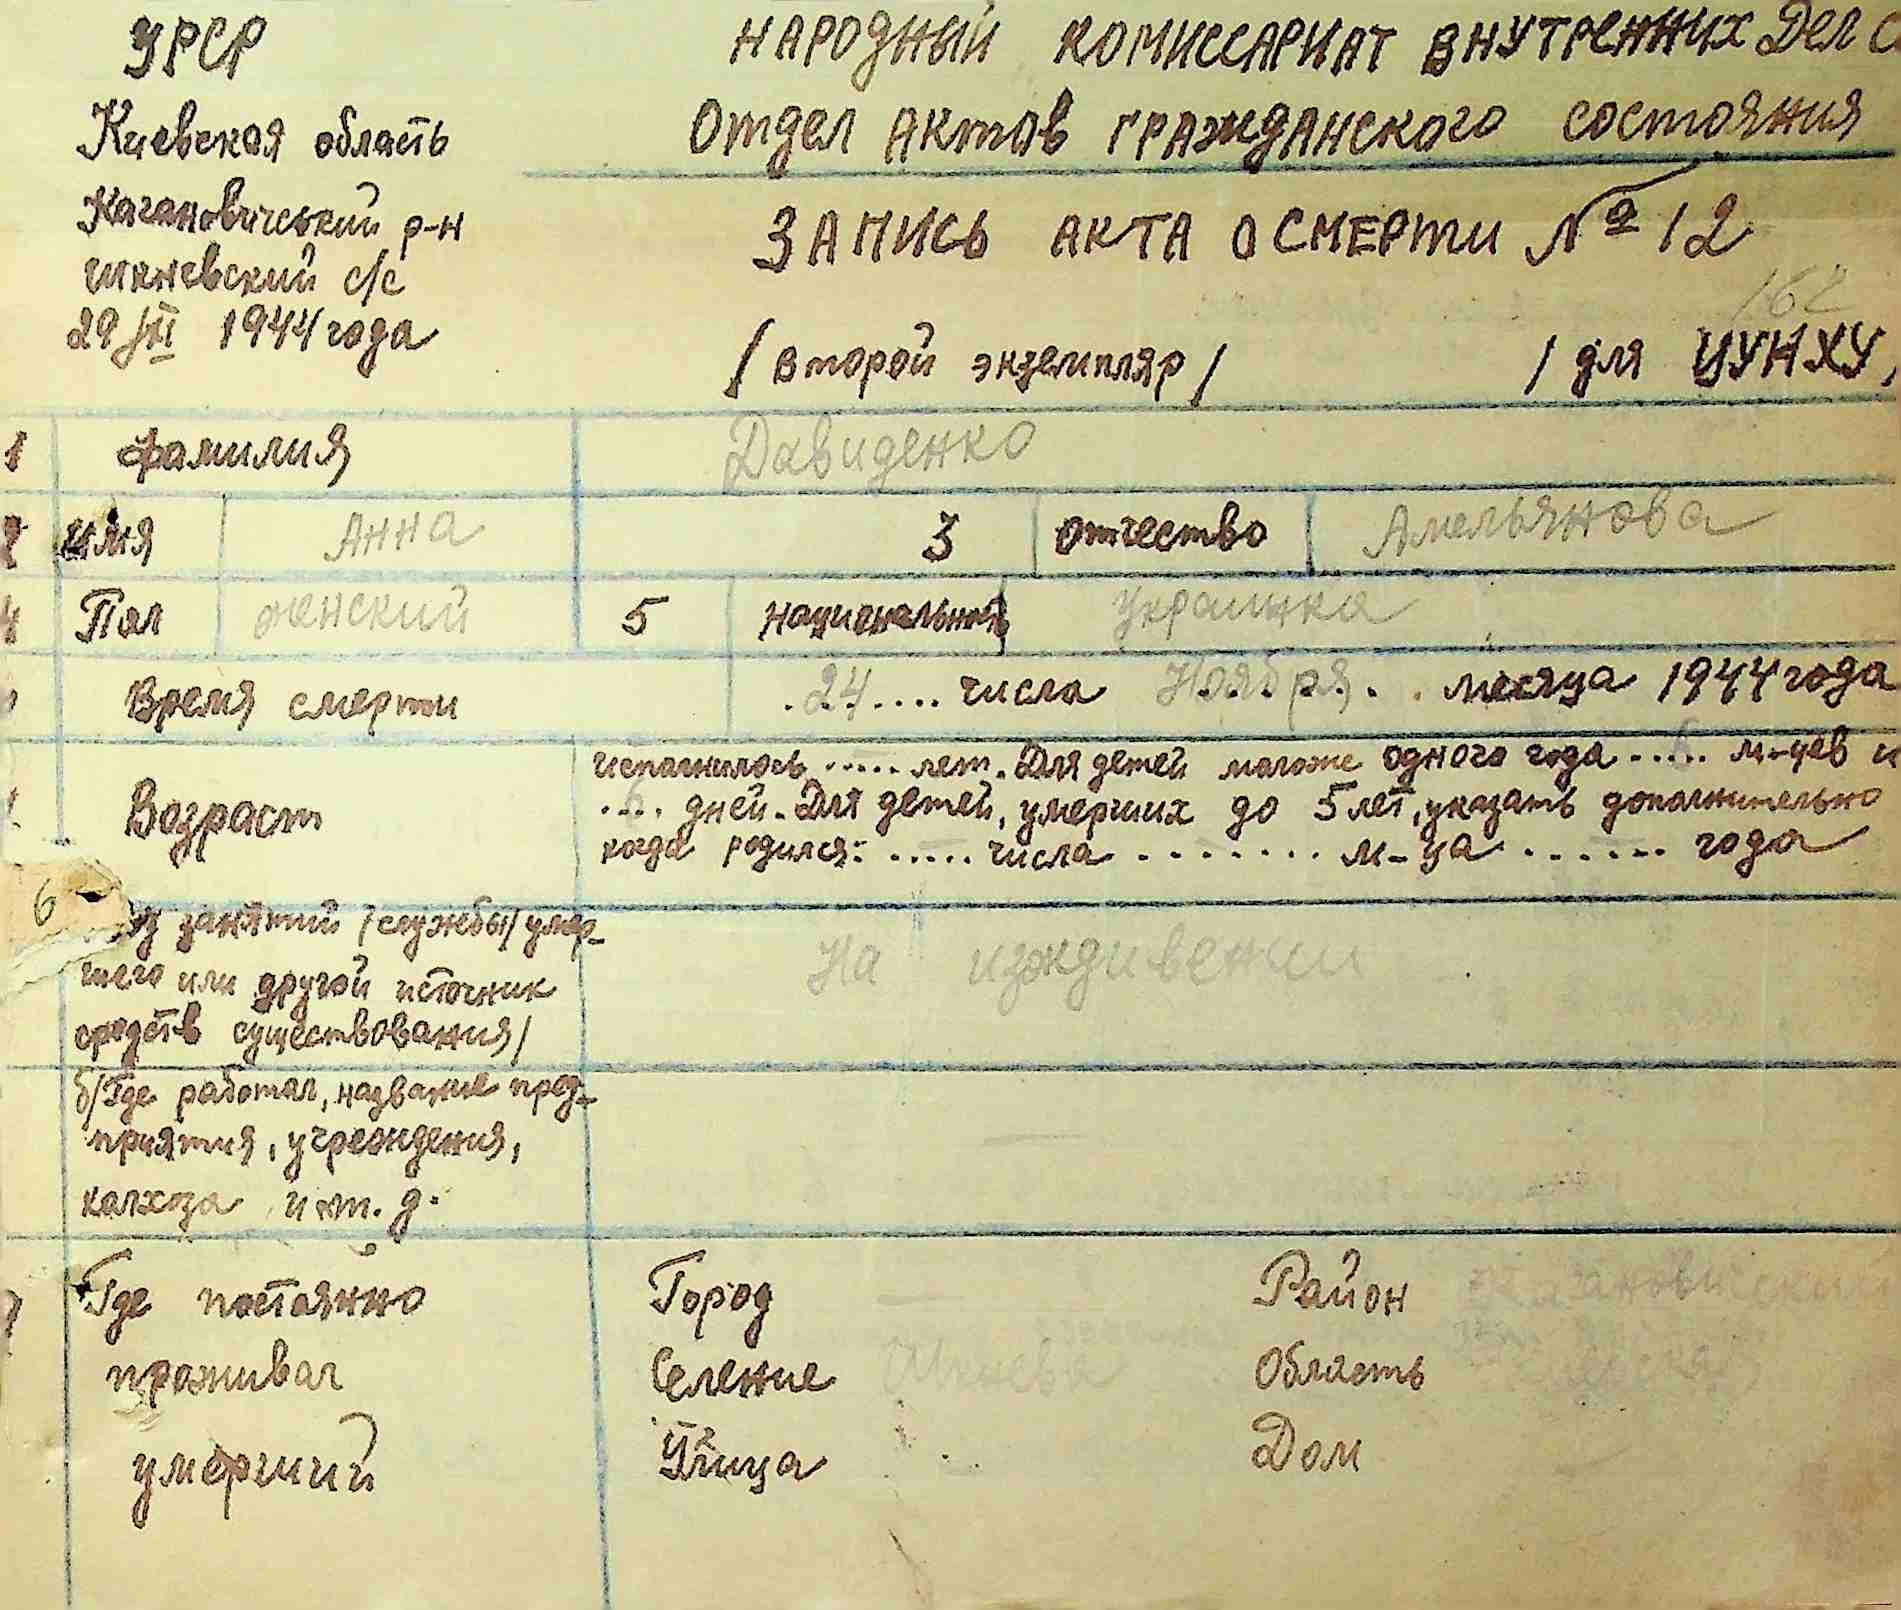 УРСР
НАРОДНЫЙ КОМИССАРИАТ ВНУТРЕННИХ Дел С
Киевская область
Отдел Актов гражданского состояния
Кагановичський р-н
ЗАПИСЬ АКТА О СМЕРТИ № 12
с/с
162
29/III 1944 года
/второй экземпляр/ /для ЦУНХУ,
1 фамилия Давиденко
имя Анна 3 отчество Амельянова
Пол женский 5 национальность украинка
Время смерти .24.... числа Ноября. . месяца 1944 года
исполнилось ..... лет. Для детей моложе одного года ..6.. м-цев и
Возраст
.6. дней. Для детей, умерших до 5 лет, указать дополнительно
когда родился: ..... числа ........ м-ца ....... года
6
занятий /службы/ умер-
шего или другой источник
На изждивении
средств существования/
б/ Где работал, название пред-
приятия, учреждения,
колхоза и т. д.
Где постоянно Город — Район Кагановический
проживал Селение Область
умерший Улица Дом